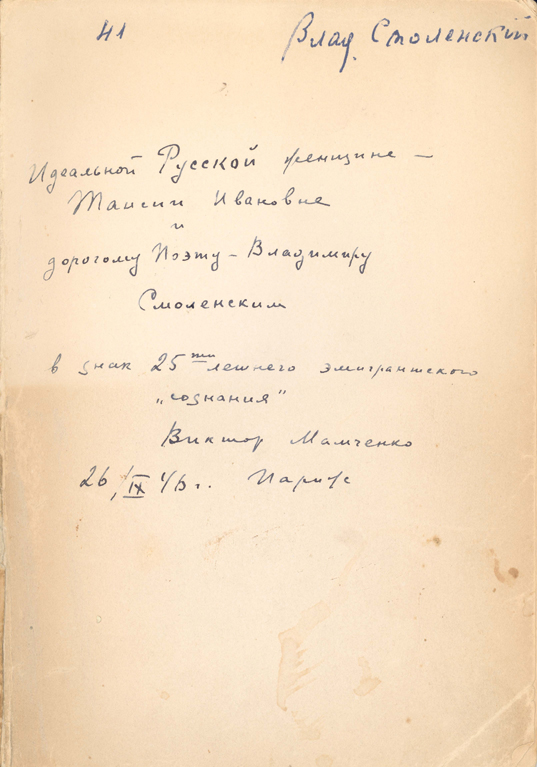 41
Влад. Смоленскій
Идеальной Русской женщине —
Таисии Ивановне
и
дорогому Поэту — Владимиру
Смоленским
в знак 25ти летнего эмигрантского
„сознания"
Виктор Мамченко
26/IX 46 г. Париж